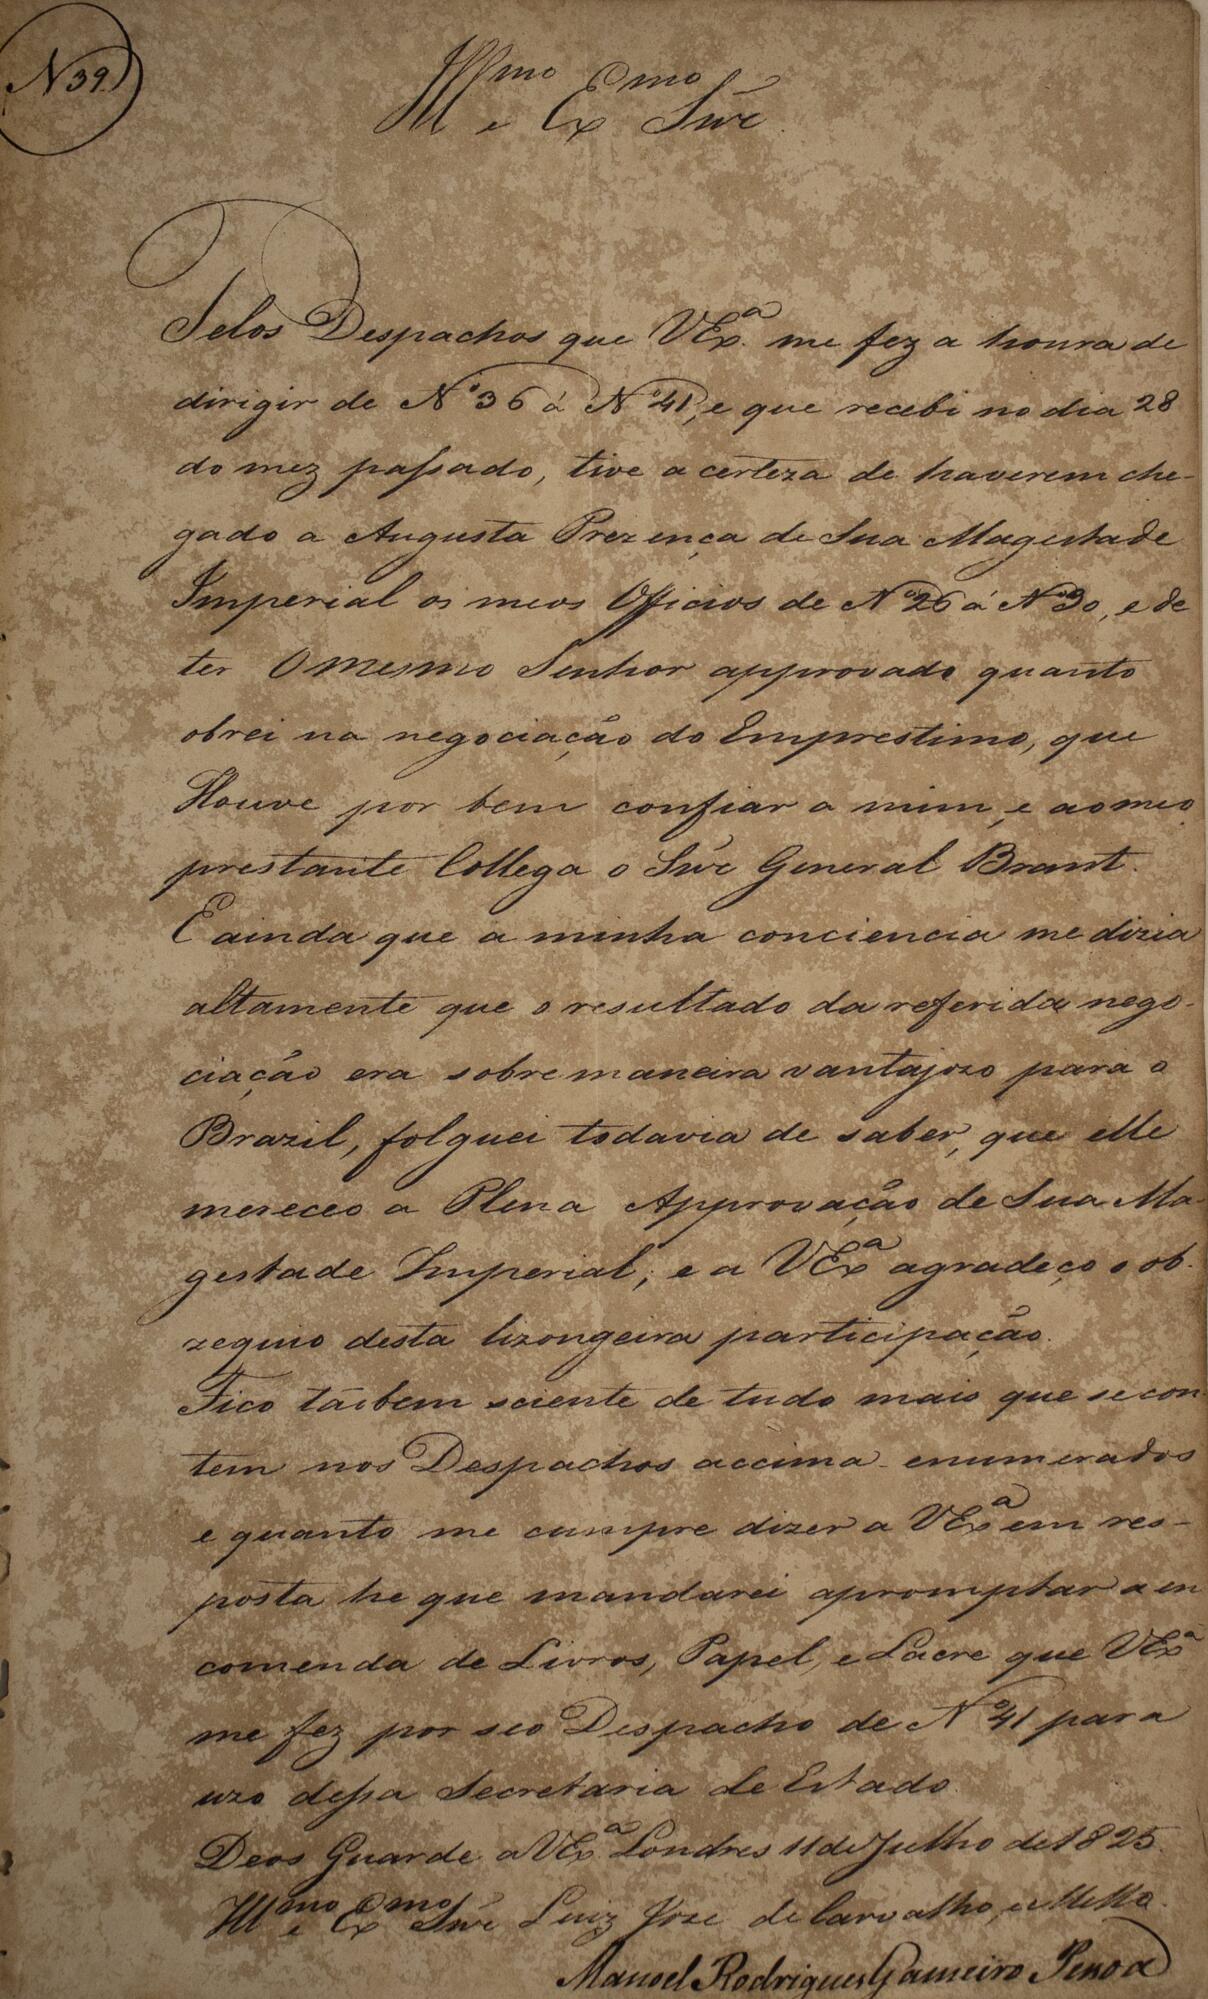 N 39
Ill^mo e Ex^mo Sñr
Pelos Despachos que VEx^a. me fez a honra de
dirigir de Nº 36 á Nº 41, e que recebi no dia 28
do mez passado, tive a certeza de haverem che-
gado a Augusta Prezença de Sua Magestade
Imperial os meos Officios de Nº 26 á Nº 30, e de
ter O mesmo Senhor approvado quanto
obrei na negociação do Emprestimo, que
Houve por bem confiar a mim, e ao meo
prestante Collega o Sñr General Brant.
E ainda que a minha conciencia me dizia
altamente que o resultado da referida nego-
ciação era sobremaneira vantajozo para o
Brazil, folguei todavia de saber, que elle
mereceo a Plena Approvação de Sua Ma-
gestade Imperial; e a VEx^a agradeço o ob-
zequio desta lizongeira participação.
Fico taõbem sciente de tudo mais que se con-
tem nos Despachos accima enumerados
e quanto me cumpre dizer a VEx^a em res-
posta he que mandarei apromptar a en
comenda de Livros, Papel, e Lacre que VEx^a
me fez por seo Despacho de Nº 41 para
uzo dessa Secretaria de Estado.
Deos Guarde a VEx^a Londres 11 de Julho de 1825.
Ill^mo e Ex^mo Sñr Luiz Joze de Carvalho, e Mello.
Manoel Rodrigues Gameiro Pessoa